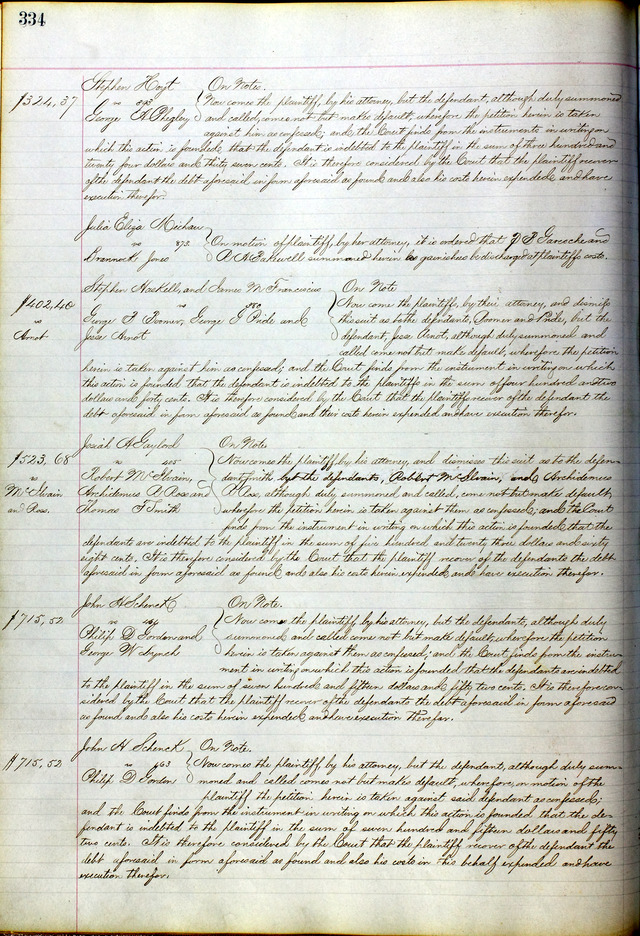 334
Stephen Hoyt On Note.
$324,37 vs 393 Now comes the plaintiff, by his attorney, but the defendant, although duly summoned
George A Phegley and called, comes not but makes default, wherefore the petition herein is taken
against him as confessed, and the Court finds from the instrument in writing on
which this action is founded, that the defendant is indebted to the plaintiff in the sum of three hundred and
twenty four dollars and thirty seven cents. It is therefore considered by the Court that the plaintiff recover
of the defendant the debt aforesaid in form aforesaid as found and also his costs herein expended and have
execution therefor.
Julia Eliza Michau
vs 373 On motion of plaintiff, by her attorney, it is ordered that and
Brannock Jones A H summoned herein as garnishees be discharged at plaintiffs costs.
Stephen Haskell, and James M Franciscus On Note
$402,40 vs 380 Now come the plaintiffs, by their attorney, and dismiss
vs George P and this suit as to the defendants, and but the
Arnot Jesse Arnot defendant, Jesse Arnot, although duly summoned and
called come not but make default, wherefore the petition
herein is taken against him as confessed, and the Court finds from the instrument in writing on which
this action is founded that the defendant is indebted to the plaintiffs in the sum of four hundred and two
dollars and forty cents. It is therefore considered by the Court that the plaintiffs recover of the defendant the
debt aforesaid in form aforesaid as found and their costs herein expended and have execution therefor.
Josiah H Gaylord On Note
$523,68 vs 405 Now comes the plaintiff by his attorney, and dismisses this suit as to the defen-
vs Robert McIlvain, dant Smith but the defendants, Robert McIlvain, and Archidemus
McIlvain Archidemus R Ross and R Ross, although duly summoned and called, come not but make default,
and Ross. Thomas F Smith wherefore the petition herein is taken against them as confessed, and the Court
finds from the instrument in writing on which this action is founded, that the
defendants are indebted to the plaintiff in the sum of five hundred and twenty three dollars and sixty
eight cents. It is therefore considered by the Court that the plaintiff recover of the defendants the debt
aforesaid in form aforesaid as found and also his costs herein expended and have execution therefor.
John H Schenck On Note.
$715,52 vs Now comes the plaintiff by his attorney, but the defendants, although duly
Philip D Gordon and summoned and called come not but make default, wherefore the petition
George W Lynch herein is taken against them as confessed; and the Court finds from the instru-
ment in writing on which this action is founded that the defendants are indebted
to the plaintiff in the sum of seven hundred and fifteen dollars and fifty two cents. It is therefore con-
sidered by the Court that the plaintiff recover of the defendants the debt aforesaid in form aforesaid
as found and also his costs herein expended and have execution therefor.
John H Schenck On Note.
$715,52 vs 463 Now comes the plaintiff by his attorney, but the defendant, although duly sum-
Philip D Gordon moned and called comes not but makes default, wherefore, on motion of the
plaintiff the petition herein is taken against said defendant as confessed;
and the Court finds from the instrument in writing on which this action is founded that the de-
fendant is indebted to the plaintiff in the sum of seven hundred and fifteen dollars and fifty
two cents. It is therefore considered by the Court that the plaintiff recover of the defendant the
debt aforesaid in form aforesaid as found and also his costs in this behalf expended and have
execution therefor.